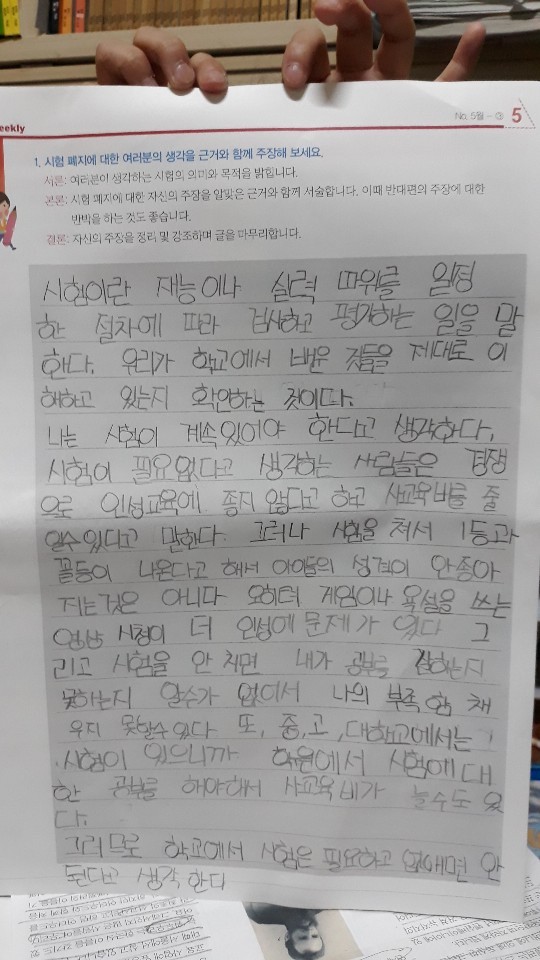 eekly
No. 5월-③ 5
1. 시험 폐지에 대한 여러분의 생각을 근거와 함께 주장해 보세요.
서론: 여러분이 생각하는 시험의 의미와 목적을 밝힙니다.
본론: 시험 폐지에 대한 자신의 주장을 알맞은 근거와 함께 서술합니다. 이때 반대편의 주장에 대한
반박을 하는 것도 좋습니다.
결론: 자신의 주장을 정리 및 강조하며 글을 마무리합니다.
시험이란 재능이나 실력 따위를 일정
한 절차에 따라 검사하고 평가하는 일을 말
한다. 우리가 학교에서 배운 것들을 제대로 이
해하고 있는지 확인하는 것이다.
나는 시험이 계속있어야 한다고 생각한다.
시험이 필요없다고 생각하는 사람들은 경쟁
으로 인성교육에 좋지 않다고 하고 사교육비를 줄
일수있다고 말한다. 그러나 시험을 쳐서 1등과
꼴등이 나온다고 해서 아이들의 성격이 안좋아
지는것은 아니다 오히려 게임이나 욕설을 쓰는
영상 시청이 더 인성에 문제가 있다 그
리고 시험을 안 치면 내가 공부를 잘하는지
못하는지 알수가 없어서 나의 부족함 채
우지 못할수있다. 또, 중,고,대학교에서는
시험이 있으니까 학원에서 시험에 대
한 공부를 해야해서 사교육비가 늘수도 있
다.
그러므로 학교에서 시험은 필요하고 없애면 안
된다고 생각한다